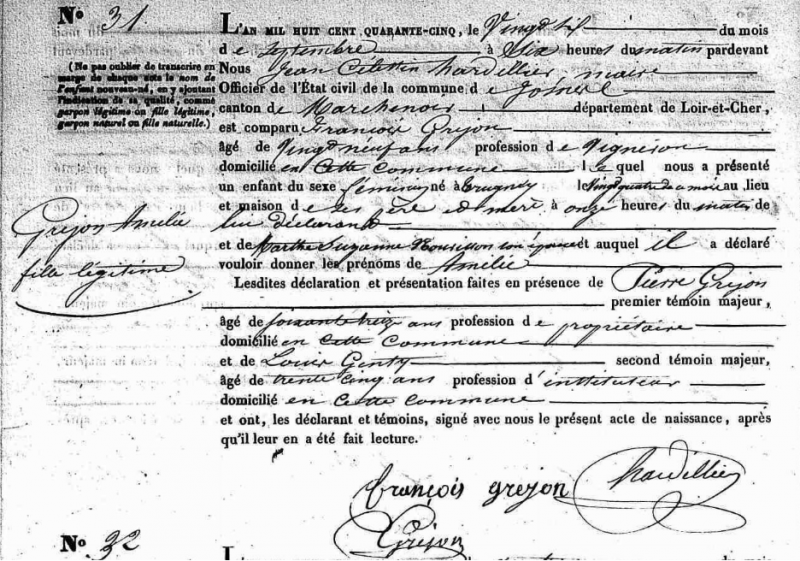 No 31
L'AN MIL HUIT CENT QUARANTE-CINQ, le Vingt Six du mois
de septembre à dix heures du matin pardevant
Nous Jean Célestin hardillier, maire
Officier de l'État civil de la commune de
canton de Marchenoir département de Loir-et-Cher,
est comparu François Grejon
âgé de Vingt neuf ans profession de Vigneron
domicilié en Cette commune lequel nous a présenté
un enfant du sexe féminin, né à le Vingt quatre de ce mois au lieu
et maison de ses père et mère à onze heures du matin de
lui déclarant
et de Marthe Suzanne son épouse et auquel il a déclaré
vouloir donner les prénoms de Amélie
Lesdites déclaration et présentation faites en présence de Pierre Grejon
premier témoin majeur,
âgé de ans profession de propriétaire
domicilié en cette Commune
et de Louis Genty second témoin majeur,
âgé de trente cinq ans profession d'instituteur
domicilié en Cette commune
et ont, les déclarant et témoins, signé avec nous le présent acte de naissance, après
qu'il leur en a été fait lecture.
(Ne pas oublier de transcrire en
marge de chaque acte le nom de
l'enfant nouveau-né, en y ajoutant
l'indication de sa qualité, comme
garçon légitime ou fille légitime,
garçon naturel ou fille naturelle.)
Grejon Amelie
fille légitime
françois grejon hardillier
Grejon
No 32